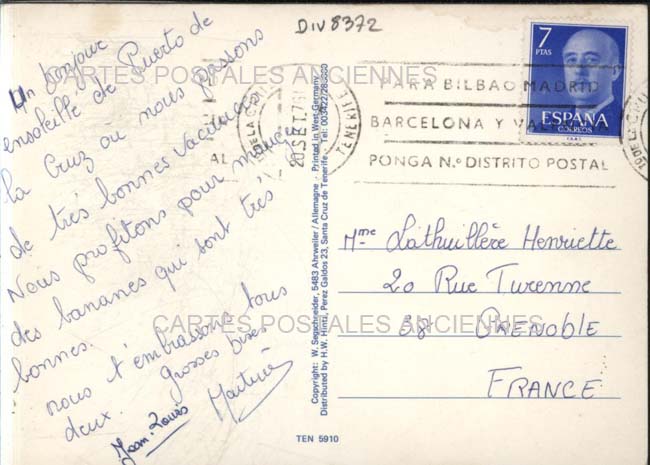 DIV8372
Un bonjour
ensoleillé de Puerto de
la Cruz ou nous passons
de très bonnes vacances.
Nous profitons pour manger
des bananes qui sont très
bonnes.
nous t'embrassons tous
deux. Grosses bises
Jean-Louis Martine
CARTES POSTALES ANCIENNES
CARTES POSTALES ANCIENNES
Copyright: W. Segschneider, 5483 Ahrweiler / Allemagne - Printed in West Germany
Distributed by H.W. Hintz, Perez Galdos 23, Santa Cruz de Tenerife - Tel: 003422/285660
TEN 5910
20 SET. 75
TENERIFE
PARA BILBAO MADRID
BARCELONA Y VALENCIA
PONGA N.º DISTRITO POSTAL
7
PTAS
ESPAÑA
CORREOS
Mme Lathuillère Henriette
20 Rue Turenne
38 GRENOBLE
FRANCE